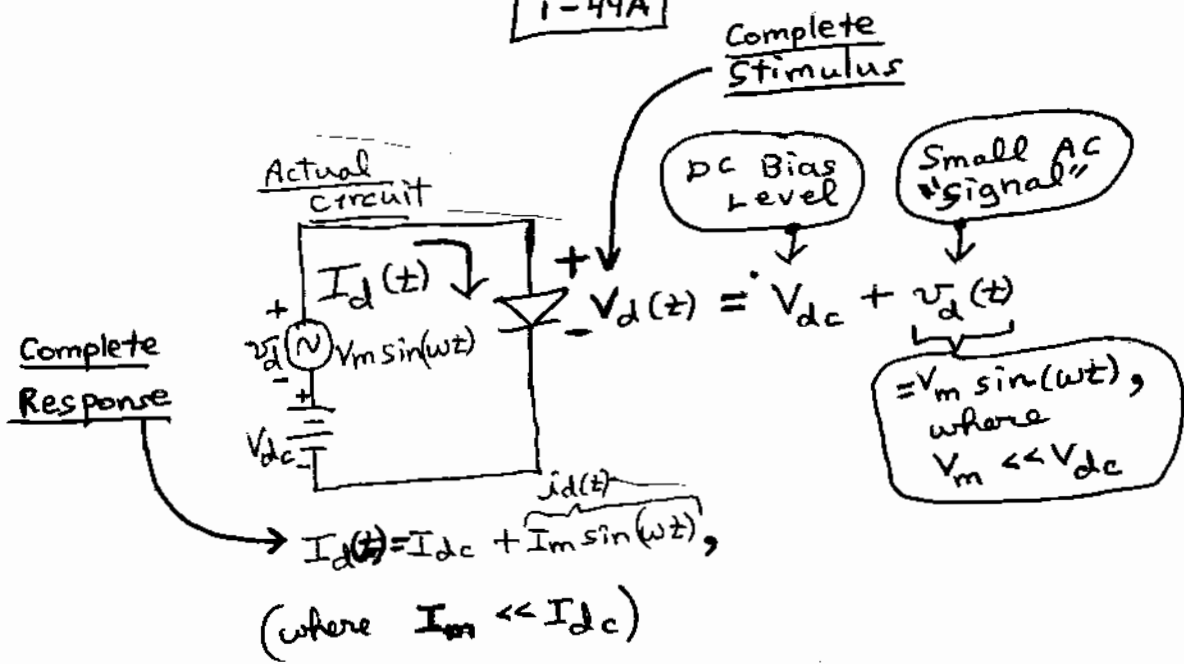 1-44A
Complete
Stimulus
Actual
circuit
DC Bias
Level
Small AC
"signal"
I_d(t)
+
V_d(t) = V_dc + v_d(t)
-
+
v_d V_m sin(ωt)
-
+
V_dc
-
= V_m sin(ωt),
where
V_m << V_dc
Complete
Response
i_d(t)
I_d(t) = I_dc + I_m sin(ωt),
(where I_m << I_dc)